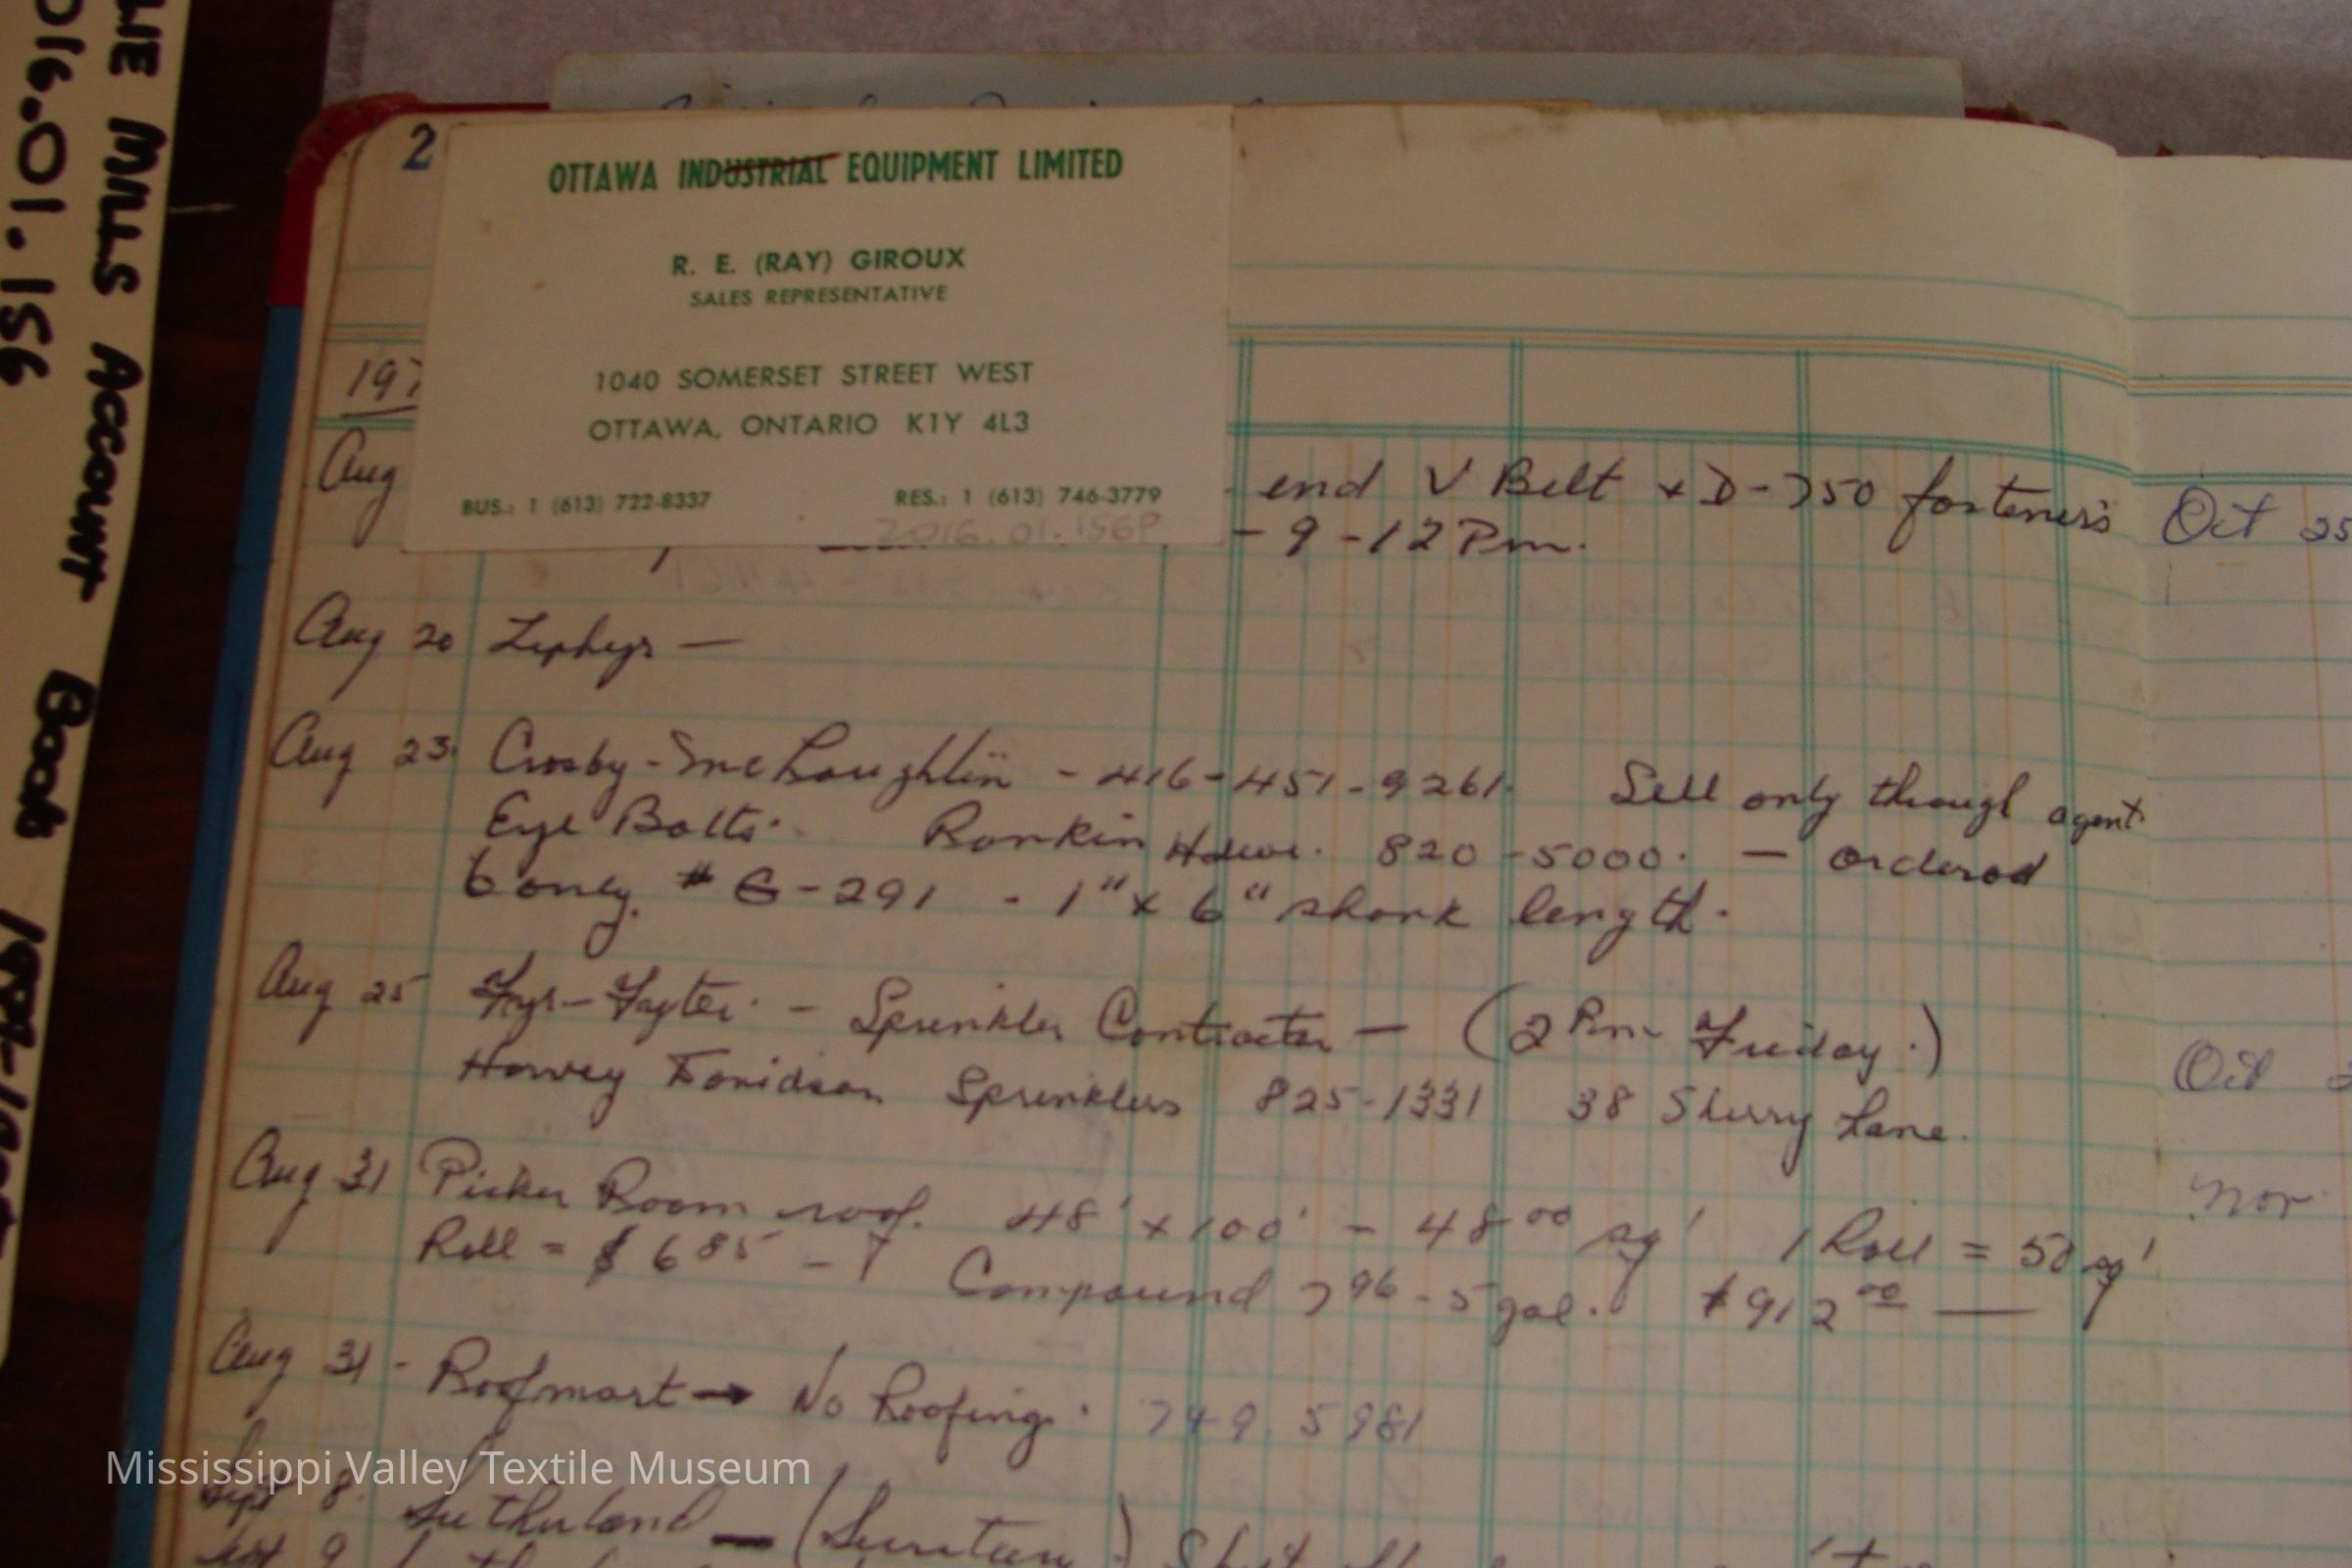 LIE MILLS ACCOUNT Book
016.01.156
2
OTTAWA INDUSTRIAL EQUIPMENT LIMITED
R. E. (RAY) GIROUX
SALES REPRESENTATIVE
1040 SOMERSET STREET WEST
OTTAWA, ONTARIO K1Y 4L3
BUS.: 1 (613) 722-8337 RES.: 1 (613) 746-3779
2016.01.156P
197
Aug end V Belt + D-750 fasteners
- 9-12 Pm.
Aug 20 Zephyr —
Aug 23 Crosby-McLaughlin - 416-451-9261. Sell only through agent
Eye Bolts. Rankin Hdwe. 820-5000. — ordered
6 only. # G-291 - 1" x 6" shank length.
Aug 25 Fyr-Fyter. - Sprinkler Contractor — (2 Pm Friday.)
Harvey Sprinklers 825-1331 38 Lane.
Aug 31 Picker Room roof. 48' x 100' - 48 00 sq' 1 Roll = 50 sq'
Roll = $6 85 - Compound 7 96 - 5 gal. $912 00 —
Aug 31 - Roofmart → No Roofing. 749.5981
Sept 8. Sutherland —
Oct 25
Oct
Nov
Mississippi Valley Textile Museum